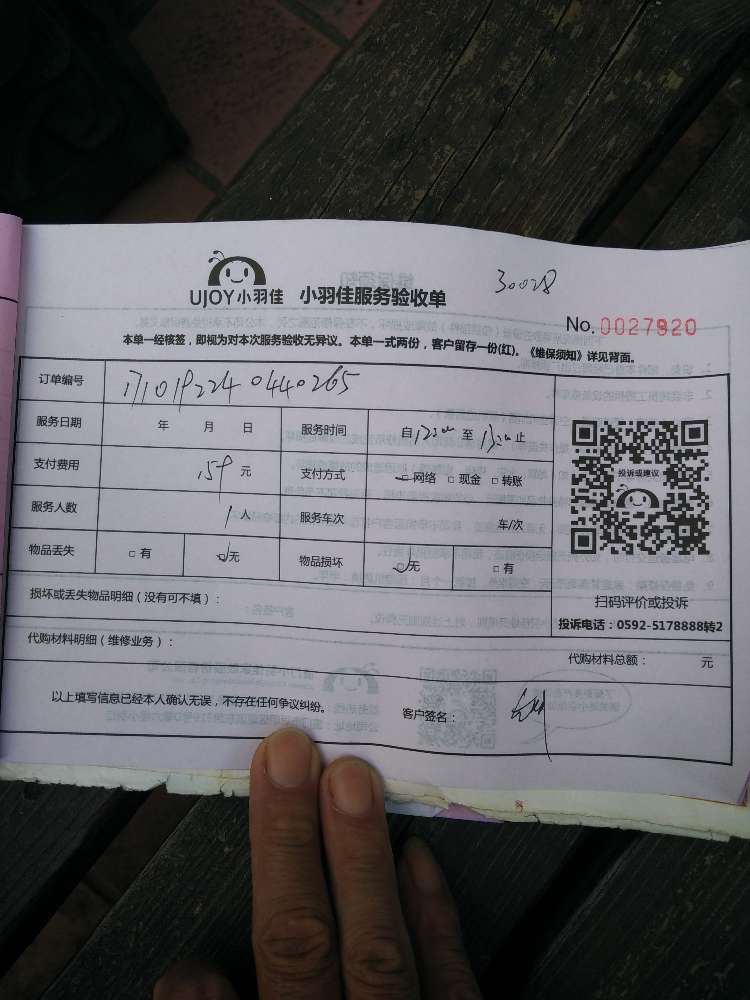 30028
UJOY小羽佳 小羽佳服务验收单
No. 0027920
本单一经核签，即视为对本次服务验收无异议。本单一式两份，客户留存一份(红)。《维保须知》详见背面。
订单编号 1710192240440265
服务日期 年 月 日 服务时间 自 至 止
支付费用 159 元 支付方式 网络 □现金 □转账
服务人数 1 人 服务车次 车/次
物品丢失 □有 无 物品损坏 无 □有
投诉或建议
损坏或丢失物品明细（没有可不填）：
扫码评价或投诉
投诉电话：0592-5178888转2
代购材料明细（维修业务）：
代购材料总额： 元
以上填写信息已经本人确认无误，不存在任何争议纠纷。 客户签名：